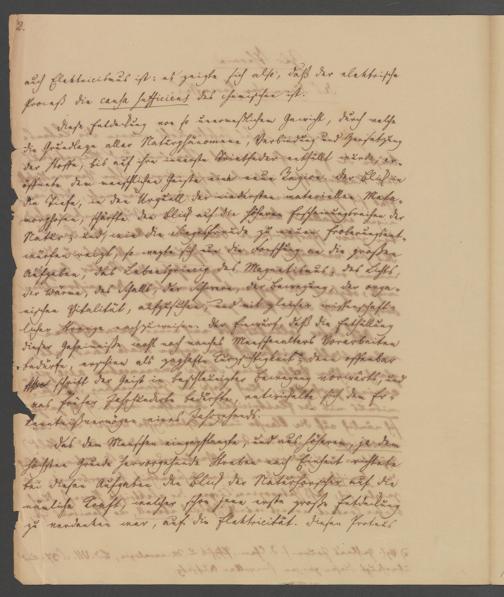 2.
auch Elektricismus ist: es zeigte sich also, daß der elektrische
Proceß die causa sufficiens des chemischen ist.
Diese Entdeckung von so unermeßlichem Gewicht, durch welche
die Grundlage aller Naturphänomene, Verbindung und Zersetzung
der Stoffe, bis auf ihre innerste enthüllt wurde, er-
öffnete dem menschlichen Geiste eine neue Der Blick in
die Tiefe, in den Urquell der niedersten materiellen Meta-
morphosen, schärfte den Blick auf die höheren Erscheinungsreihen der
Natur; und wie die zu neuen Eroberungsent-
würfen reizt, so wagte sich nun die Forschung an die großen
Aufgaben, das Lebensprinzip des Magnetismus, des Lichts,
der Wärme, des Schalls, der Schwere, der Bewegung, der orga-
nischen Vitalität, aufzusuchen, und mit gleicher wissenschaft-
licher Strenge nachzuweisen. Der Einwurf, daß die Enthüllung
dieser Geheimnisse noch manches Menschenalters Vorarbeiten
bedürfe, erschien als zaghafte Kurzsichtigkeit: denn offenbar
schritt der Geist in beschleunigter Bewegung vorwärts, und
was früher Jahrhunderte bedurfte, entwickelte sich dem Er-
kenntnißvermögen eines Jahrzehends.
Das dem Menschen eingepflanzte, und aus höherem, ja dem
höchsten Grunde hervorgehende Streben nach Einheit richtete
bei diesen Aufgaben den Blick der Naturforscher auf die
nämliche Kraft, welcher schon jene erste große Entdeckung
zu verdanken war, auf die Elektricität. Diesen Proteus